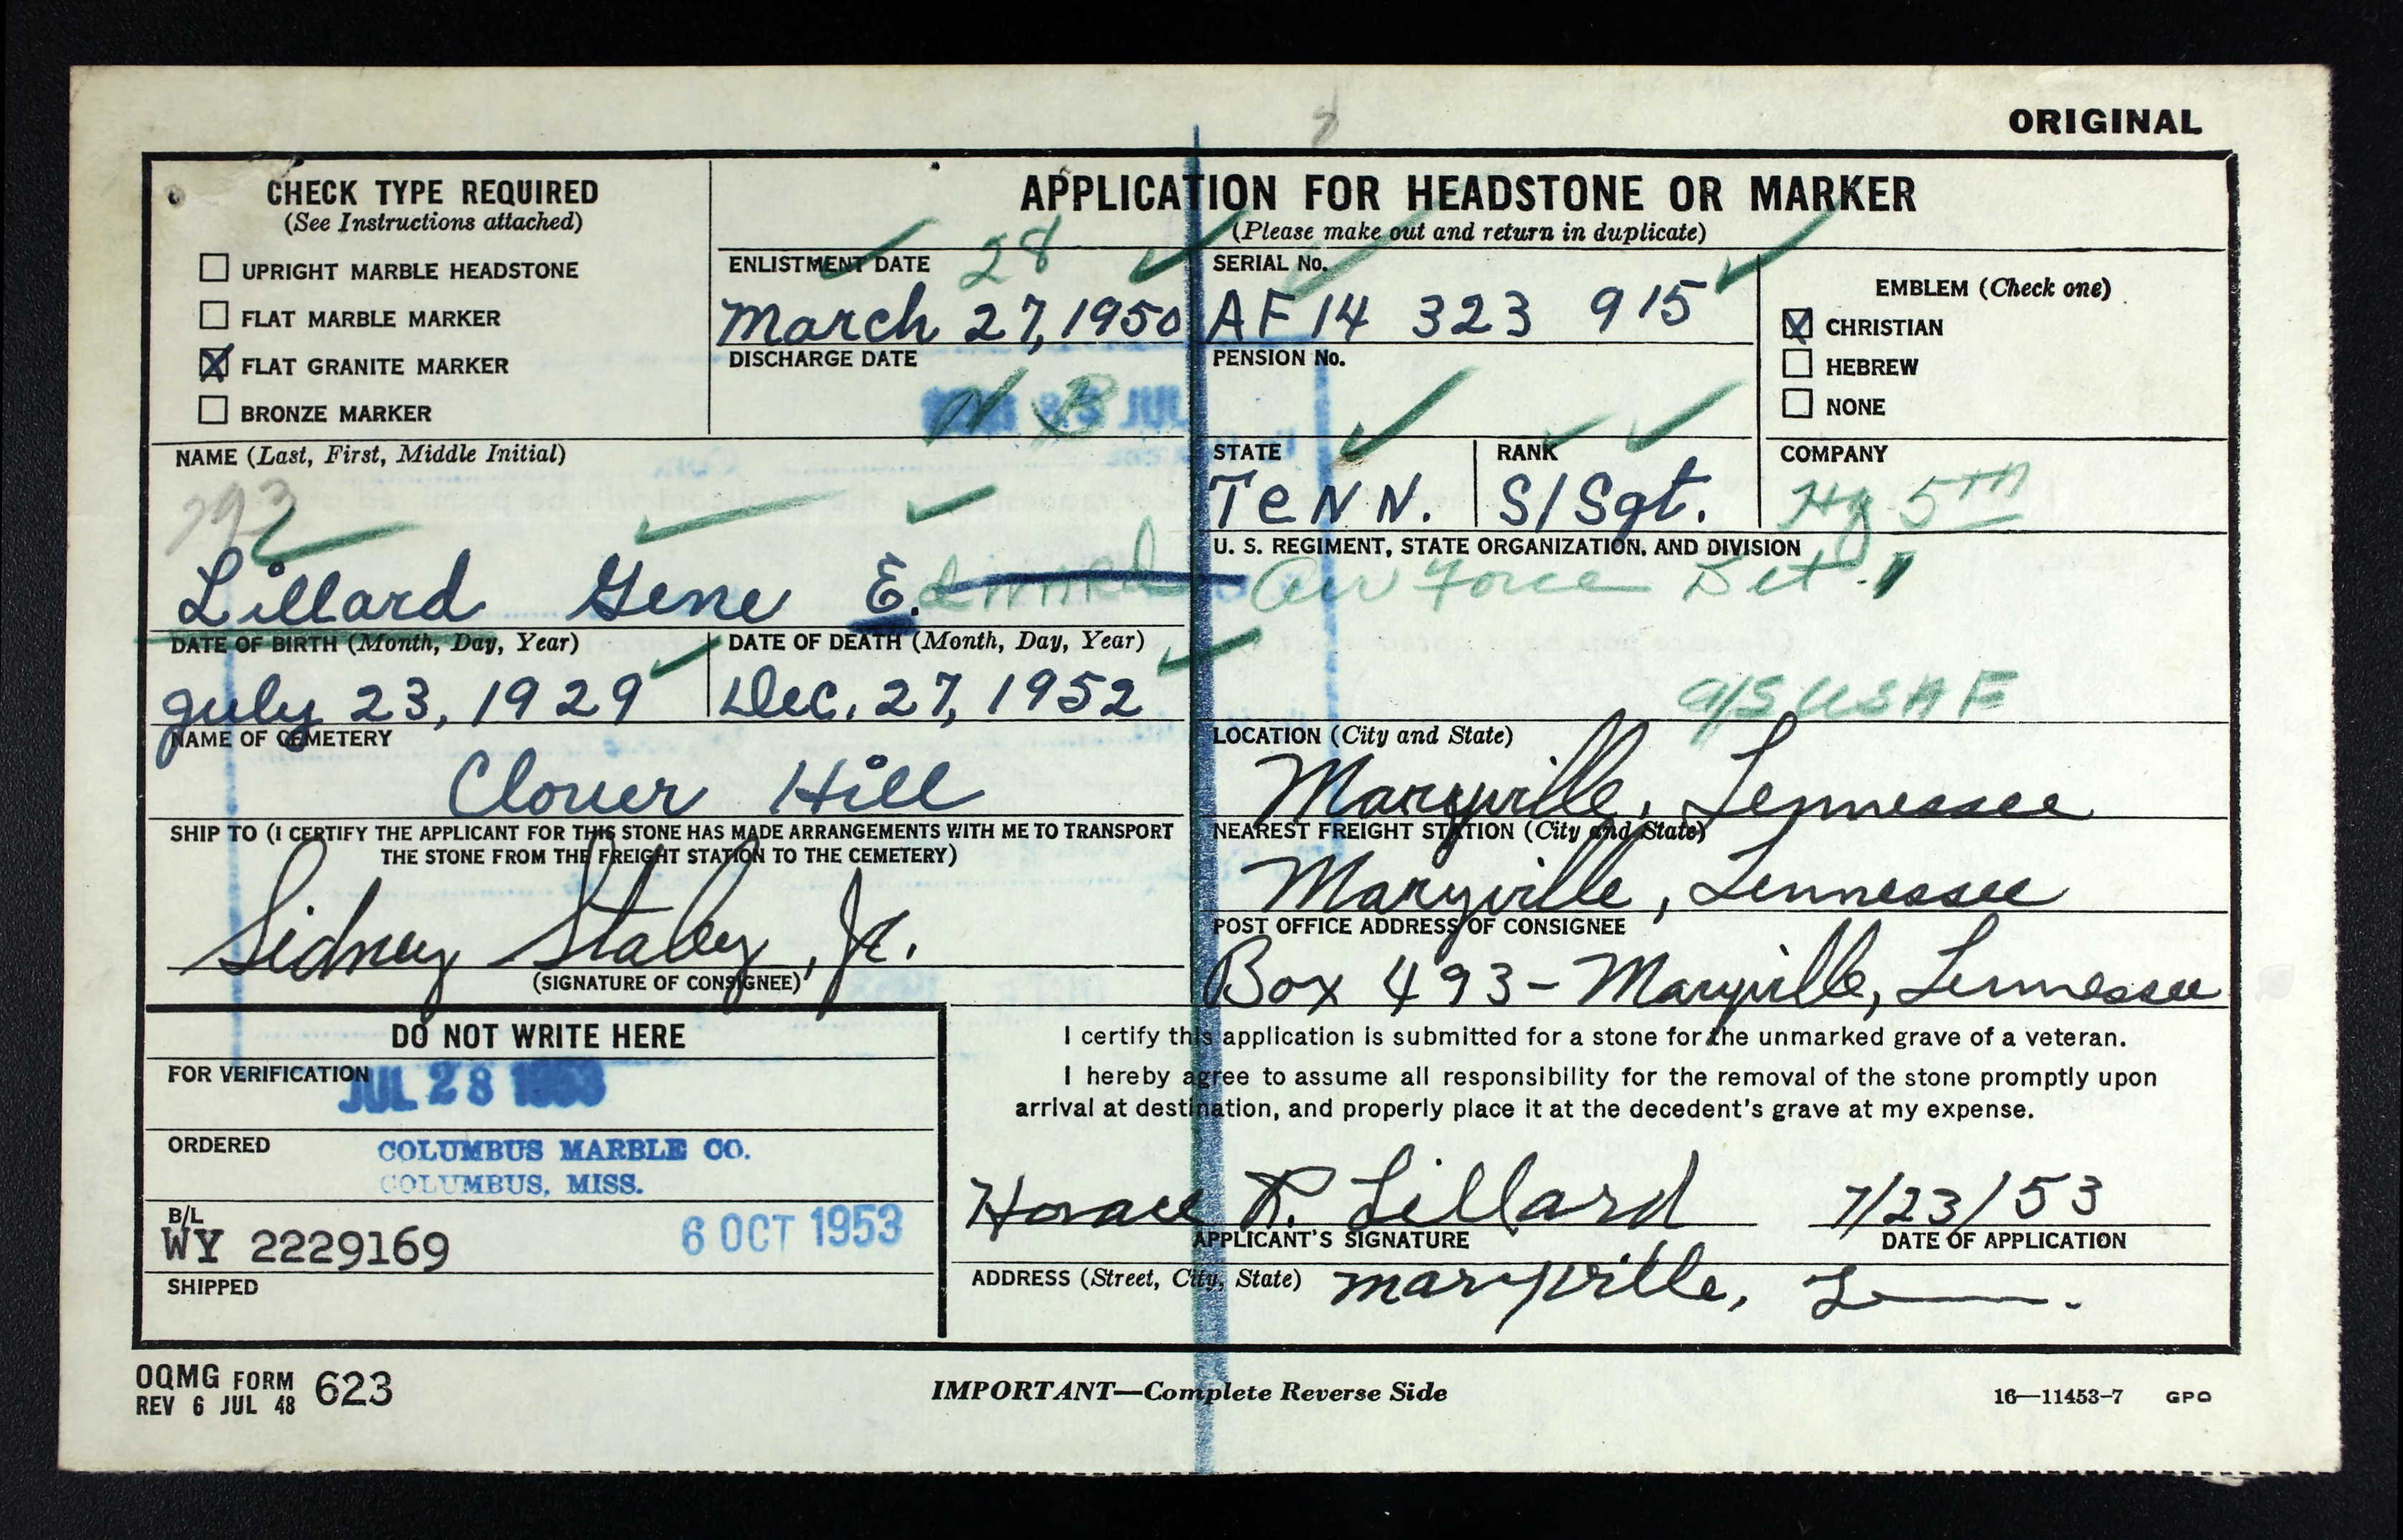 ORIGINAL
CHECK TYPE REQUIRED
(See Instructions attached)
UPRIGHT MARBLE HEADSTONE
FLAT MARBLE MARKER
X FLAT GRANITE MARKER
BRONZE MARKER
APPLICATION FOR HEADSTONE OR MARKER
(Please make out and return in duplicate)
ENLISTMENT DATE
28
March 27, 1950
SERIAL No.
AF 14 323 915
DISCHARGE DATE
PENSION No.
EMBLEM (Check one)
X CHRISTIAN
HEBREW
NONE
NAME (Last, First, Middle Initial)
Lillard Gene E.
STATE
TENN.
RANK
S/Sgt.
COMPANY
Hq 5TH
U. S. REGIMENT, STATE ORGANIZATION, AND DIVISION
Air Force Det. 1
DATE OF BIRTH (Month, Day, Year)
July 23, 1929
DATE OF DEATH (Month, Day, Year)
Dec. 27, 1952
USAF
NAME OF CEMETERY
Clover Hill
LOCATION (City and State)
Maryville, Tennessee
SHIP TO (I CERTIFY THE APPLICANT FOR THIS STONE HAS MADE ARRANGEMENTS WITH ME TO TRANSPORT
THE STONE FROM THE FREIGHT STATION TO THE CEMETERY)
Sidney Staley, Jr.
(SIGNATURE OF CONSIGNEE)
NEAREST FREIGHT STATION (City and State)
Maryville, Tennessee
POST OFFICE ADDRESS OF CONSIGNEE
Box 493 - Maryville, Tennessee
DO NOT WRITE HERE
FOR VERIFICATION
JUL 28 1953
ORDERED
COLUMBUS MARBLE CO.
COLUMBUS, MISS.
B/L
WY 2229169
6 OCT 1953
SHIPPED
I certify this application is submitted for a stone for the unmarked grave of a veteran.
I hereby agree to assume all responsibility for the removal of the stone promptly upon
arrival at destination, and properly place it at the decedent's grave at my expense.
Horace R. Lillard 7/23/53
APPLICANT'S SIGNATURE
DATE OF APPLICATION
ADDRESS (Street, City, State) Maryville,
OQMG FORM 623
REV 6 JUL 48
IMPORTANT—Complete Reverse Side
16—11453-7 GPO